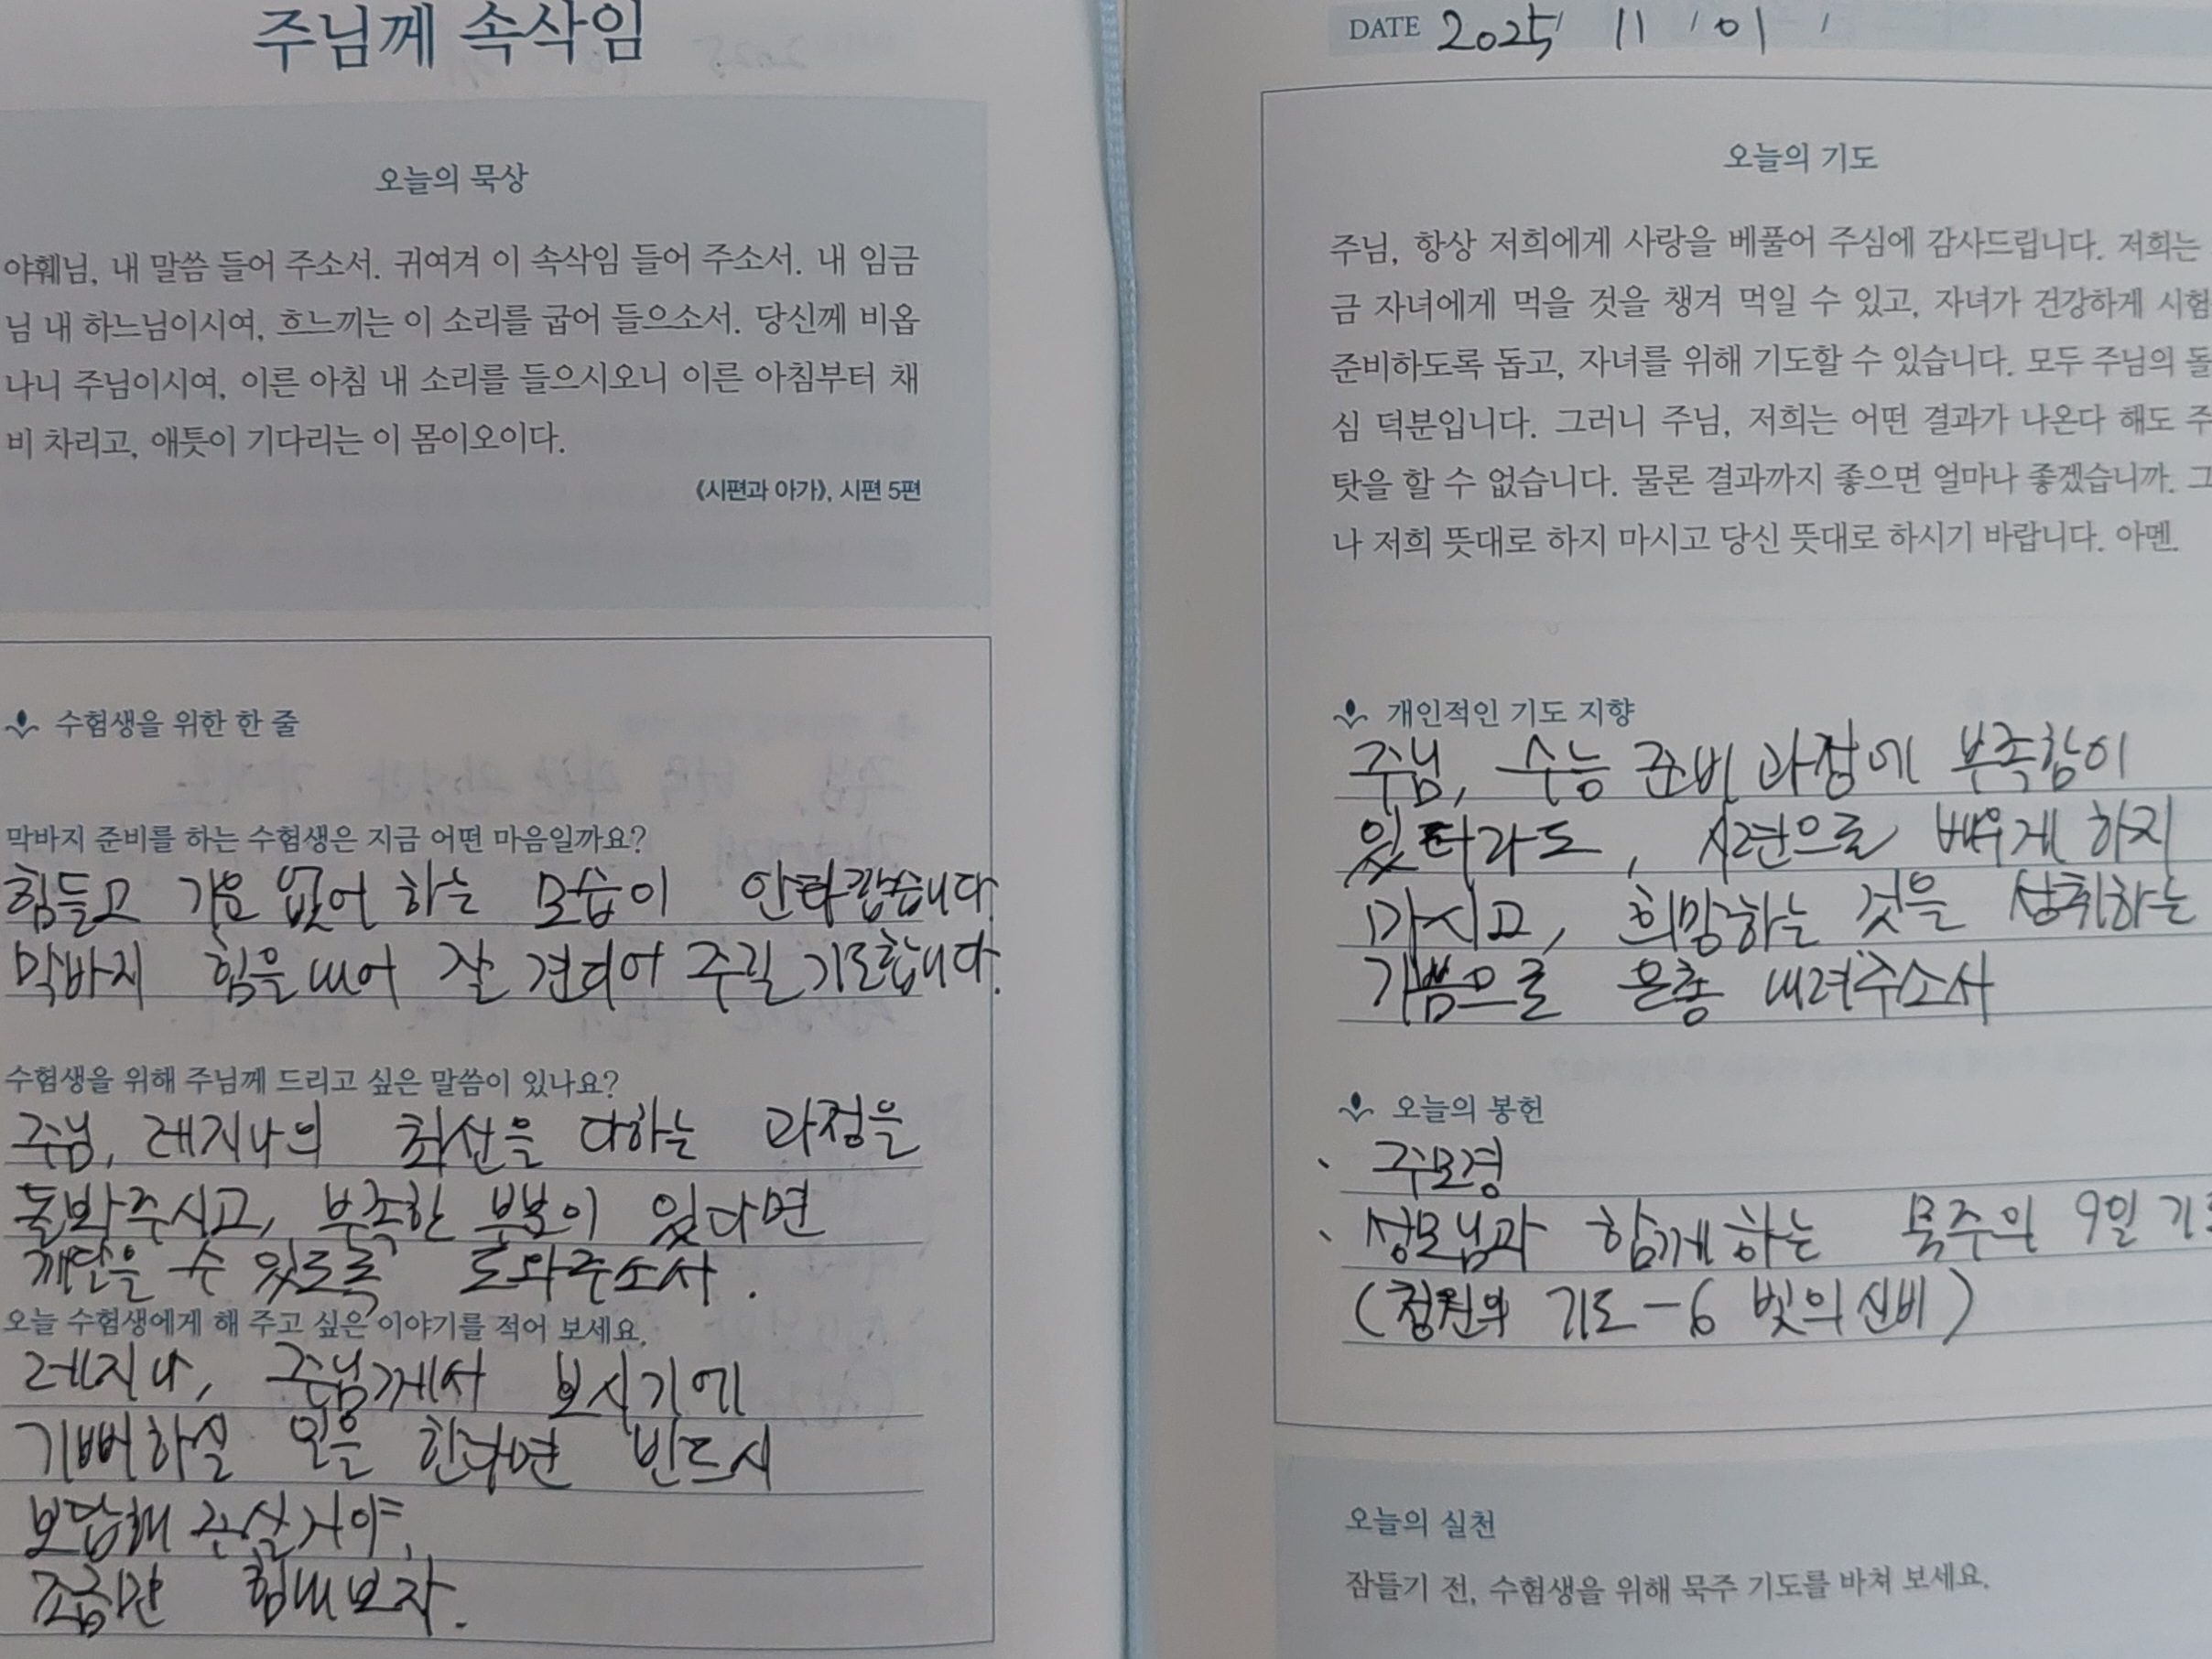 주님께 속삭임
오늘의 묵상
야훼님, 내 말씀 들어 주소서. 귀여겨 이 속삭임 들어 주소서. 내 임금
님 내 하느님이시여, 흐느끼는 이 소리를 굽어 들으소서. 당신께 비옵
나니 주님이시여, 이른 아침 내 소리를 들으시오니 이른 아침부터 채
비 차리고, 애틋이 기다리는 이 몸이오이다.
《시편과 아가》, 시편 5편
수험생을 위한 한 줄
막바지 준비를 하는 수험생은 지금 어떤 마음일까요?
힘들고 기운 없어 하는 모습이 안타깝습니다.
막바지 힘을 내어 잘 견디어 주길 기도합니다.
수험생을 위해 주님께 드리고 싶은 말씀이 있나요?
주님, 레지나의 최선을 다하는 과정을
돌봐주시고, 부족한 부분이 있다면
깨닫을 수 있도록 도와주소서.
오늘 수험생에게 해 주고 싶은 이야기를 적어 보세요.
레지나, 주님께서 보시기에
기뻐하실 일을 한다면 반드시
보답해 주실거야.
조금만 힘내보자.
DATE 2025/ 11 / 01 /
오늘의 기도
주님, 항상 저희에게 사랑을 베풀어 주심에 감사드립니다. 저희는
금 자녀에게 먹을 것을 챙겨 먹일 수 있고, 자녀가 건강하게 시험
준비하도록 돕고, 자녀를 위해 기도할 수 있습니다. 모두 주님의 돌
심 덕분입니다. 그러니 주님, 저희는 어떤 결과가 나온다 해도 주
탓을 할 수 없습니다. 물론 결과까지 좋으면 얼마나 좋겠습니까. 그
나 저희 뜻대로 하지 마시고 당신 뜻대로 하시기 바랍니다. 아멘.
개인적인 기도 지향
주님, 수능 준비 과정에 부족함이
있더라도, 시련으로 배우게 하지
마시고, 희망하는 것을 성취하는
기쁨으로 은총 내려주소서
오늘의 봉헌
、 주모경
、 성모님과 함께하는 묵주의 9일 기도
(청원의 기도 -6 빛의 신비)
오늘의 실천
잠들기 전, 수험생을 위해 묵주 기도를 바쳐 보세요.